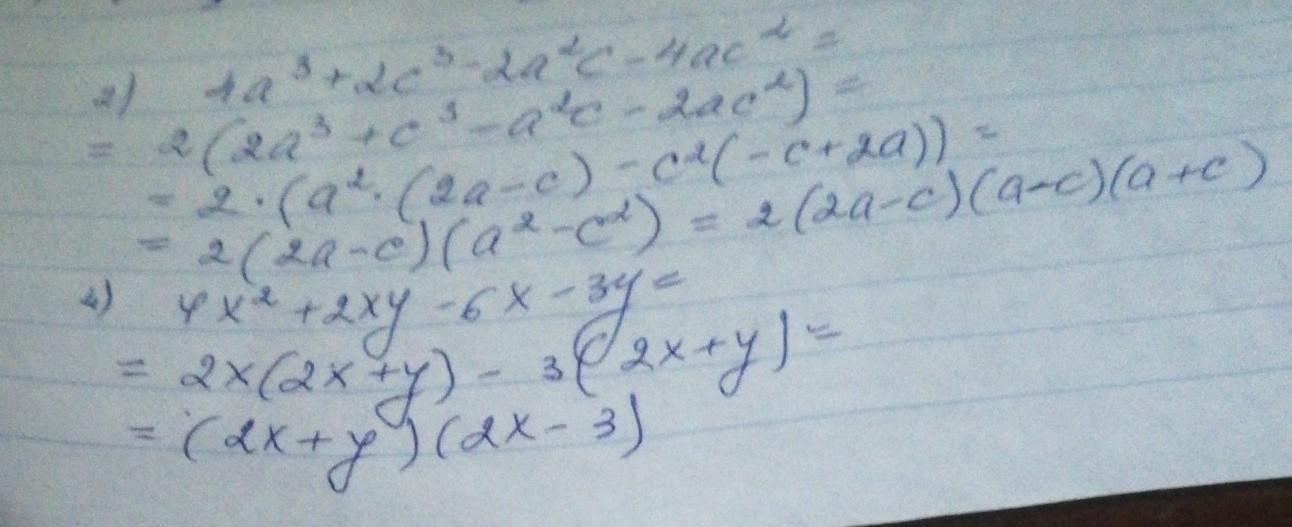 2) 4a³+2c³-2a²c-4ac²=
= 2(2a³+c³-a²c-2ac²)=
= 2·(a²·(2a-c)-c²(-c+2a))=
= 2(2a-c)(a²-c²) = 2(2a-c)(a-c)(a+c)
4x²+2xy-6x-3y=
= 2x(2x+y)-3(2x+y)=
= (2x+y)(2x-3)